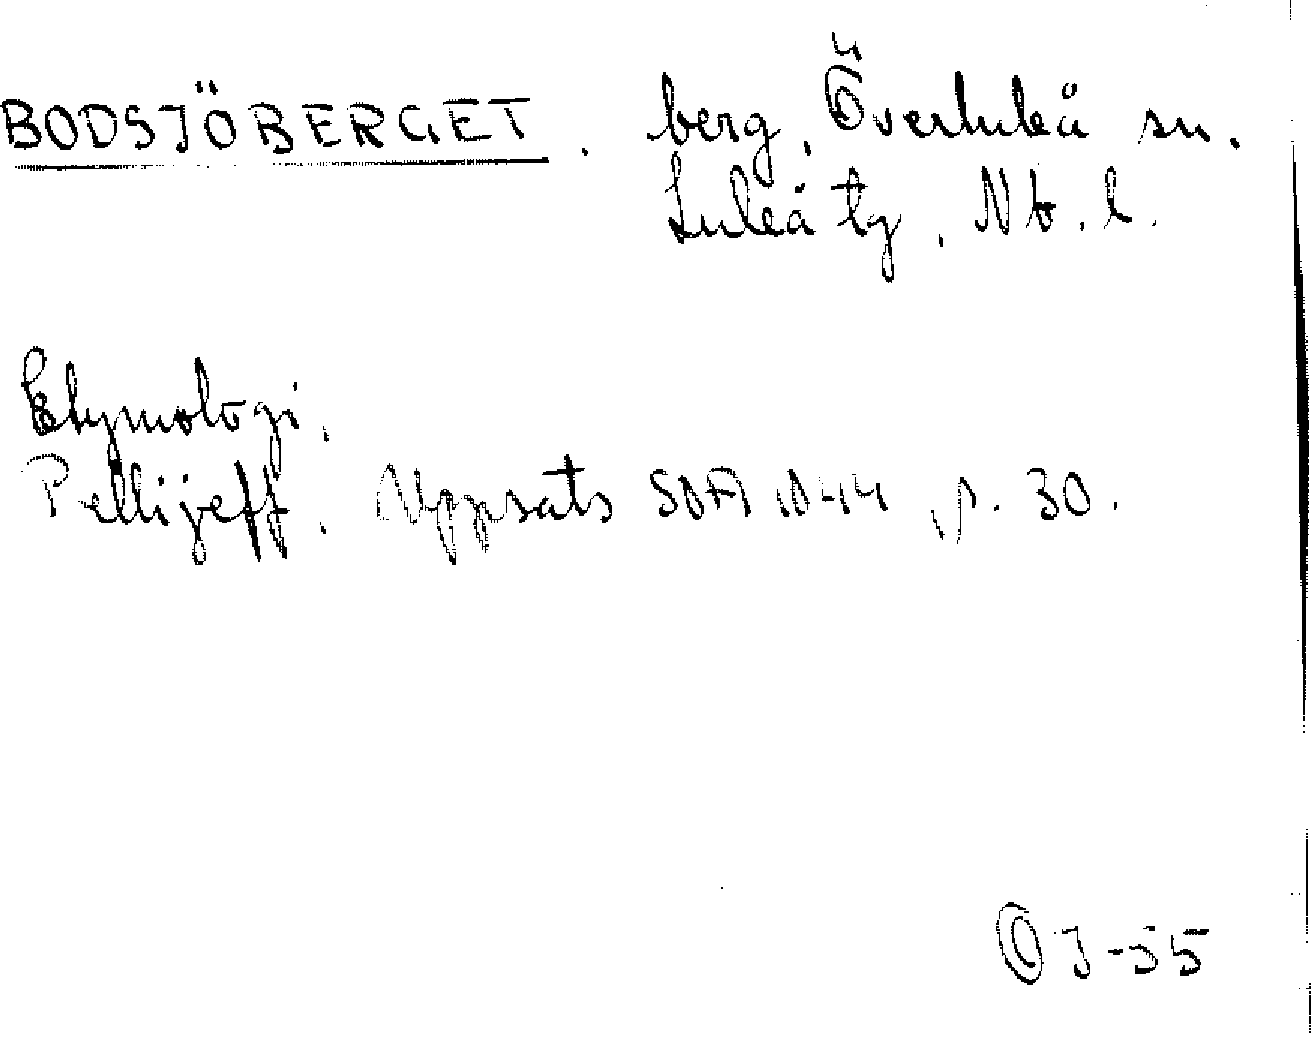 BODSJÖBERGET. berg, Överluleå sn.
Luleå tg, Nb. l.
Etymologi.
Pellijeff. Uppsats SOFA, p. 30.
J-55